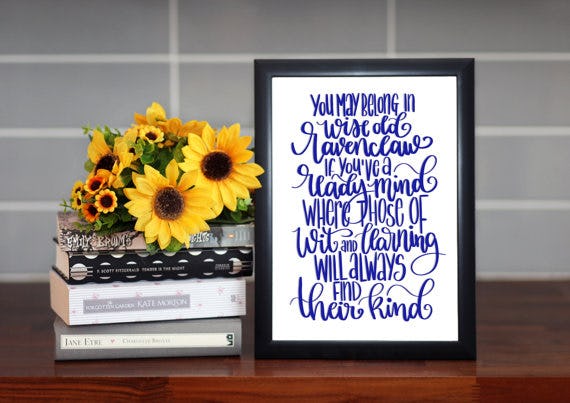 YOU MAY BELONG IN
wise old
Ravenclaw
IF YOU'VE A
ready mind
WHERE THOSE OF
Wit and learning
WILL ALWAYS
FIND
their kind
EMILY BRONTË
F. SCOTT FITZGERALD TENDER IS THE NIGHT
THE FORGOTTEN GARDEN KATE MORTON
JANE EYRE CHARLOTTE BRONTË